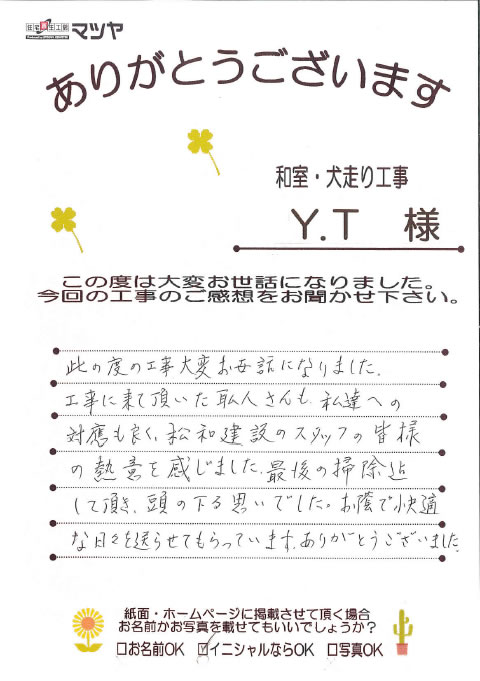 住宅再生工房 マツヤ
ありがとうございます
和室・犬走り工事
Y.T 様
この度は大変お世話になりました。
今回の工事のご感想をお聞かせ下さい。
此の度の工事大変お世話になりました。
工事に来て頂いた職人さんも、私達への
対應も良く、松和建設のスタッフの皆様
の熱意を感じました。最後の掃除迄
して頂き、頭の下る思いでした。お蔭で快適
な日々を送らせてもらっています。ありがとうございました。
紙面・ホームページに掲載させて頂く場合
お名前かお写真を載せてもいいでしょうか?
□お名前OK ☑イニシャルならOK □写真OK